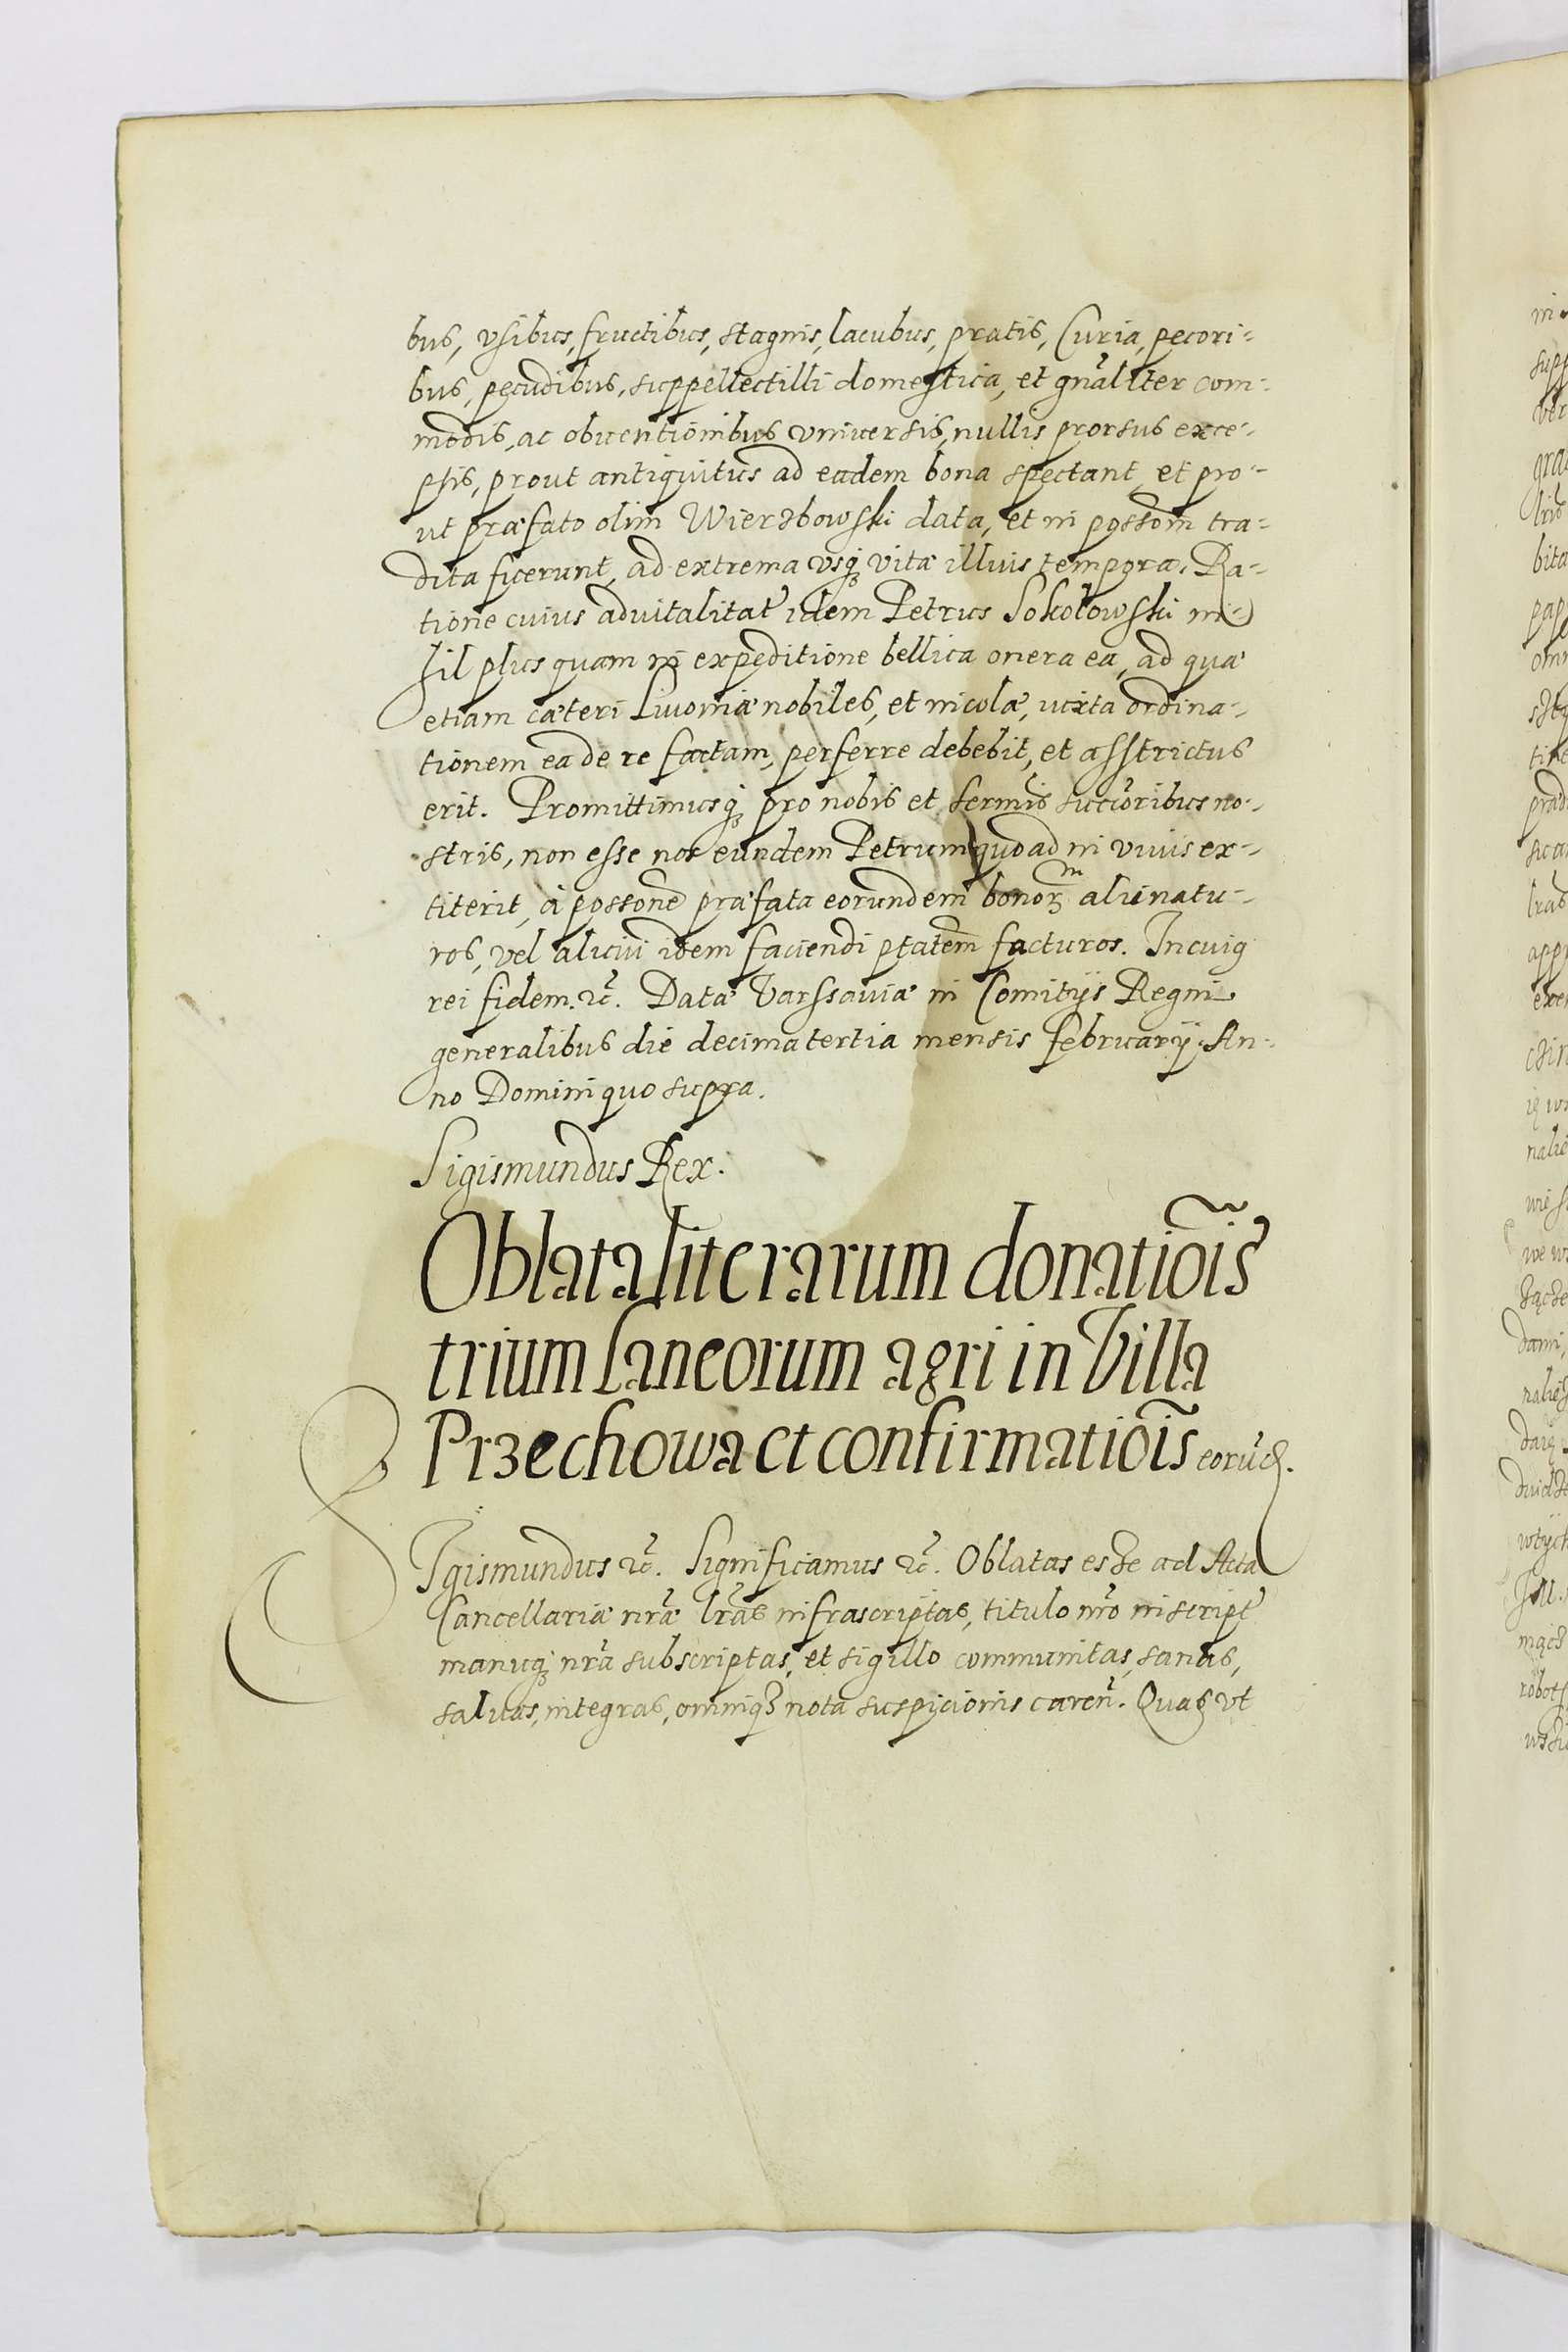 bus, vsibus, fructibus, stagnis, lacubus, pratis, Curia, pecori-
bus, pecudibus, suppellectilli domestica, et gnãliter com-
modis, ac obuentionibus vniuersis, nullis prorsus exce-
ptis, prout antiquitus ad eadem bona spectant, et pro-
ut præfato olim Wierzbowski data, et in possom tra-
dita fuerunt, ad extrema vsq vitæ illius tempora. Ra-
tione cuius aduitalitat idem Petrus Sokołowski ni-
hil plus quam in expeditione bellica onera ea, ad quæ
etiam cæteri Liuoniæ nobiles, et incolæ, iuxta ordina-
tionem ea de re factam, perferre debebit, et asstrictus
erit. Promittimusq pro nobis et sermis succoribus no-
stris, non esse nos eundem Petrum quoad in viuis ex-
titerit, à possone præfata eorundem bonorꝝ alienatu-
ros, vel alicui idem faciendi ptatem facturos. In cuiꝯ
rei fidem. ꝛc. Data Varssauiæ in Comitijs Regni
generalibus die decima tertia mensis Februarij. An-
no Domini quo supra.
Sigismundus Rex.
Oblata literarum donatiois
trium laneorum agri in Villa
Przechowa et confirmatiois eorud.
Sigismundus ꝛc. Significamus ꝛc. Oblatas esse ad Acta
Cancellariæ nræ lras infrascriptas, titulo nro inscript
manuq nra subscriptas, et sigillo communitas, sanas,
saluas, integras, omniqꝫ nota suspicionis caren. Quas vt